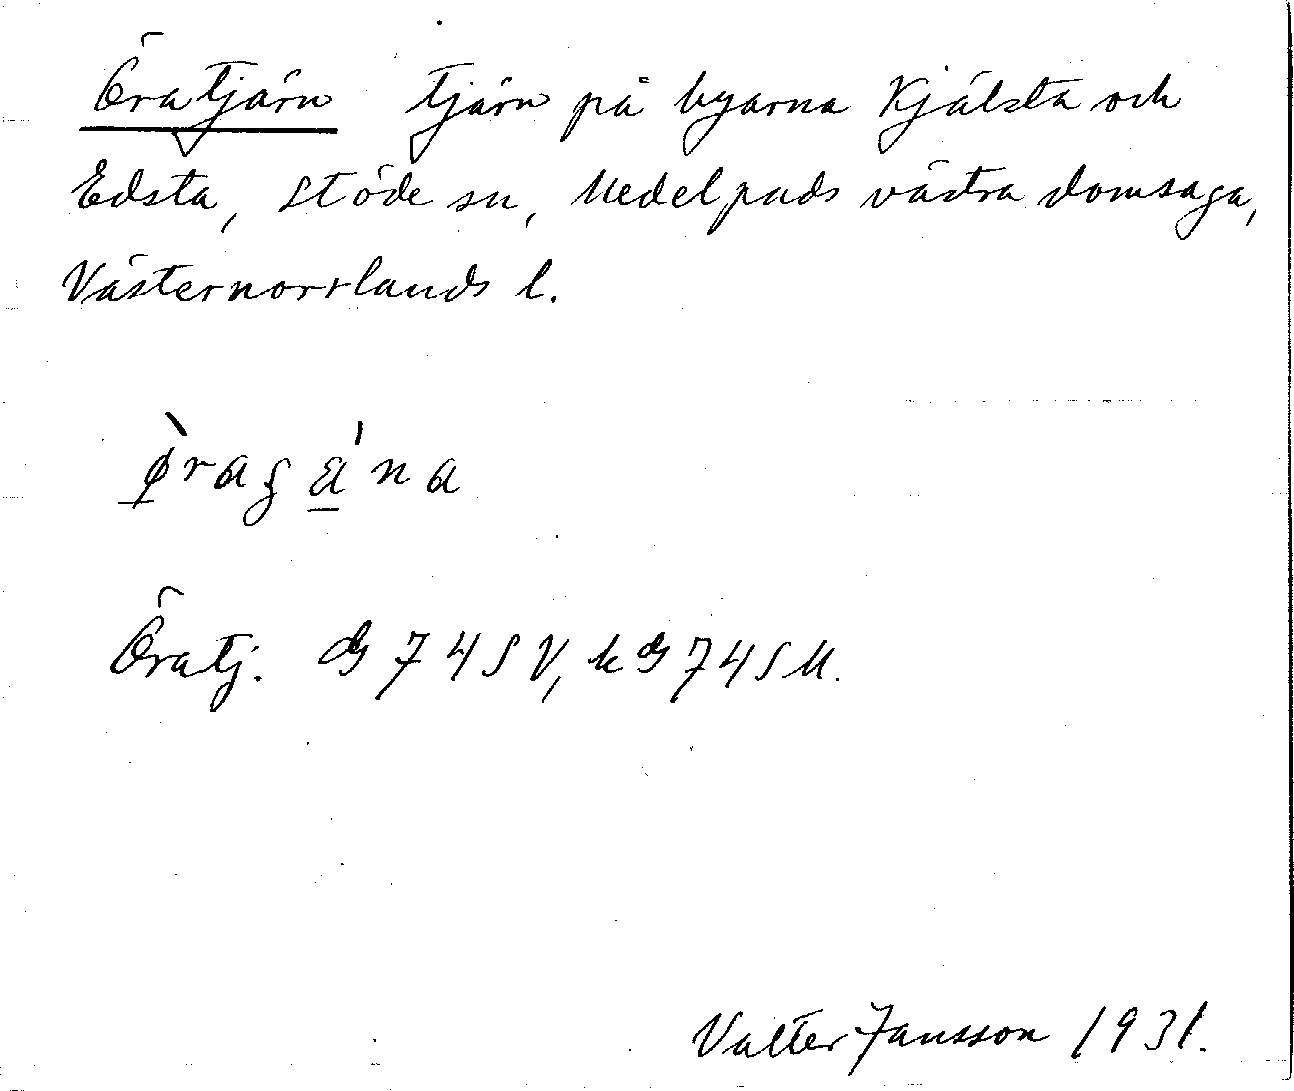 Öratjärn tjärn på byarna Kjälsta och
Edsta, Stöde sn, Medelpads västra domsaga,
Västernorrlands l.
Öratj. GS 74 SV, kGS 74 SV.
Valter Jansson 1931.